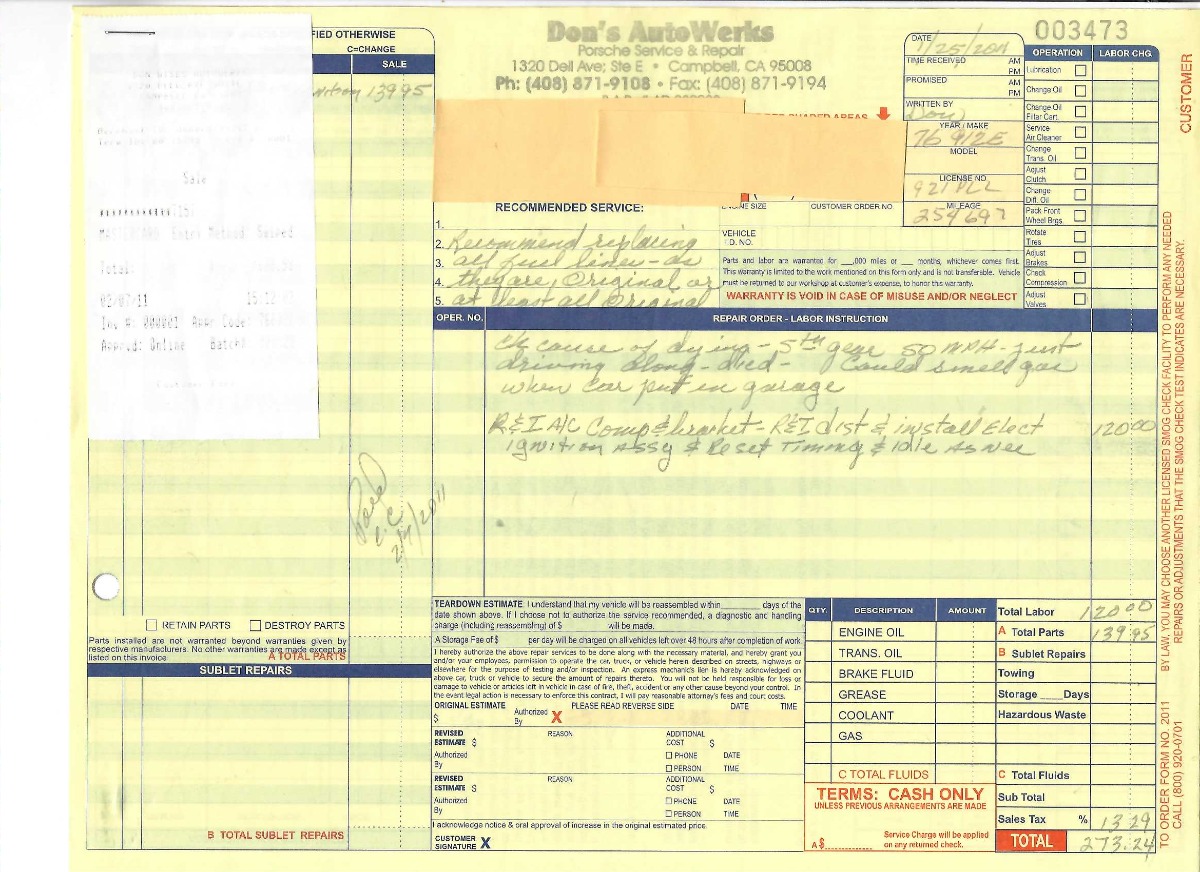 Don's AutoWerks
Porsche Service & Repair
1320 Dell Ave; Ste E • Campbell, CA 95008
Ph: (408) 871-9108 • Fax: (408) 871-9194
003473
CUSTOMER
FIED OTHERWISE
C=CHANGE
SALE
139 95
Sale
Total:
02/07/11 15:12
Inv #: 000001 Appr Code:
Apprvd: Online Batch#
DATE 1/25/2011
TIME RECEIVED AM
PM
PROMISED AM
PM
WRITTEN BY
Don
YEAR / MAKE
76 912E
MODEL
LICENSE NO.
MILEAGE
254697
OPERATION LABOR CHG.
Lubrication
Change Oil
Change Oil
Filter Cart.
Service
Air Cleaner
Change
Trans. Oil
Adjust
Clutch
Change
Diff. Oil
Pack Front
Wheel Brgs.
Rotate
Tires
Adjust
Brakes
Check
Compression
Adjust
Valves
SHADED AREAS
RECOMMENDED SERVICE:
ENGINE SIZE CUSTOMER ORDER NO.
VEHICLE
I.D. NO.
1.
2. Recommend replacing
3. all fuel lines - as
4. they are, Original or
5. at least all Original
Parts and labor are warranted for ___,000 miles or ___ months, whichever comes first.
This warranty is limited to the work mentioned on this form only and is not transferable. Vehicle
must be returned to our workshop at customer's expense, to honor this warranty.
WARRANTY IS VOID IN CASE OF MISUSE AND/OR NEGLECT
OPER. NO. REPAIR ORDER - LABOR INSTRUCTION
ck cause of dying - 5th gear 50 MPH - just
driving along - died - Could smell gas
when car put in garage
R&I A/C Comp & bracket - R&I dist & install Elect 120 00
ignition Assy & Reset Timing & Idle As Nec
Paid
2/7/2011
RETAIN PARTS DESTROY PARTS
Parts installed are not warranted beyond warranties given by
respective manufacturers. No other warranties are made except as
listed on this invoice.
A TOTAL PARTS
SUBLET REPAIRS
B TOTAL SUBLET REPAIRS
TEARDOWN ESTIMATE: I understand that my vehicle will be reassembled within_______ days of the
date shown above. If I choose not to authorize the service recommended, a diagnostic and handling
charge (including reassembling) of $ ___________ will be made.
A Storage Fee of $ ______ per day will be charged on all vehicles left over 48 hours after completion of work.
I hereby authorize the above repair services to be done along with the necessary material, and hereby grant you
and/or your employees, permission to operate the car, truck, or vehicle herein described on streets, highways or
elsewhere for the purpose of testing and/or inspection. An express mechanic's lien is hereby acknowledged on
above car, truck or vehicle to secure the amount of repairs thereto. You will not be held responsible for loss or
damage to vehicle or articles left in vehicle in case of fire, theft, accident or any other cause beyond your control. In
the event legal action is necessary to enforce this contract, I will pay reasonable attorney's fees and court costs.
ORIGINAL ESTIMATE PLEASE READ REVERSE SIDE DATE TIME
$ Authorized By X
REVISED ESTIMATE $ REASON ADDITIONAL COST $
Authorized By PHONE DATE
PERSON TIME
REVISED ESTIMATE $ REASON ADDITIONAL COST $
Authorized By PHONE DATE
PERSON TIME
I acknowledge notice & oral approval of increase in the original estimated price.
CUSTOMER SIGNATURE X
QTY. DESCRIPTION AMOUNT
ENGINE OIL
TRANS. OIL
BRAKE FLUID
GREASE
COOLANT
GAS
C TOTAL FLUIDS
TERMS: CASH ONLY
UNLESS PREVIOUS ARRANGEMENTS ARE MADE
A $
Service Charge will be applied
on any returned check.
Total Labor 120 00
A Total Parts 139.95
B Sublet Repairs
Towing
Storage ____Days
Hazardous Waste
C Total Fluids
Sub Total
Sales Tax % 13 29
TOTAL 273.24
BY LAW, YOU MAY CHOOSE ANOTHER LICENSED SMOG CHECK FACILITY TO PERFORM ANY NEEDED
REPAIRS OR ADJUSTMENTS THAT THE SMOG CHECK TEST INDICATES ARE NECESSARY.
TO ORDER FORM NO. 2011
CALL (800) 920-0701